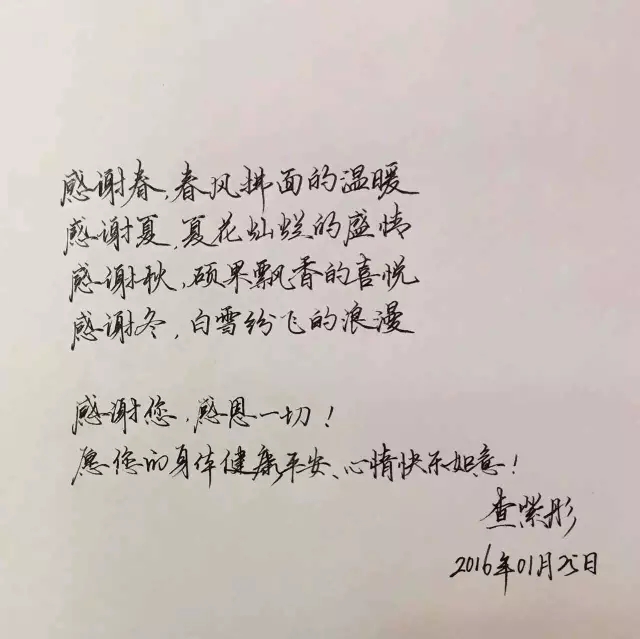 感谢春,春风拂面的温暖
感谢夏,夏花灿烂的盛情
感谢秋,硕果飘香的喜悦
感谢冬,白雪纷飞的浪漫
感谢您,感恩一切!
愿您的身体健康平安、心情快乐如意!
查紫彤
2016年01月25日